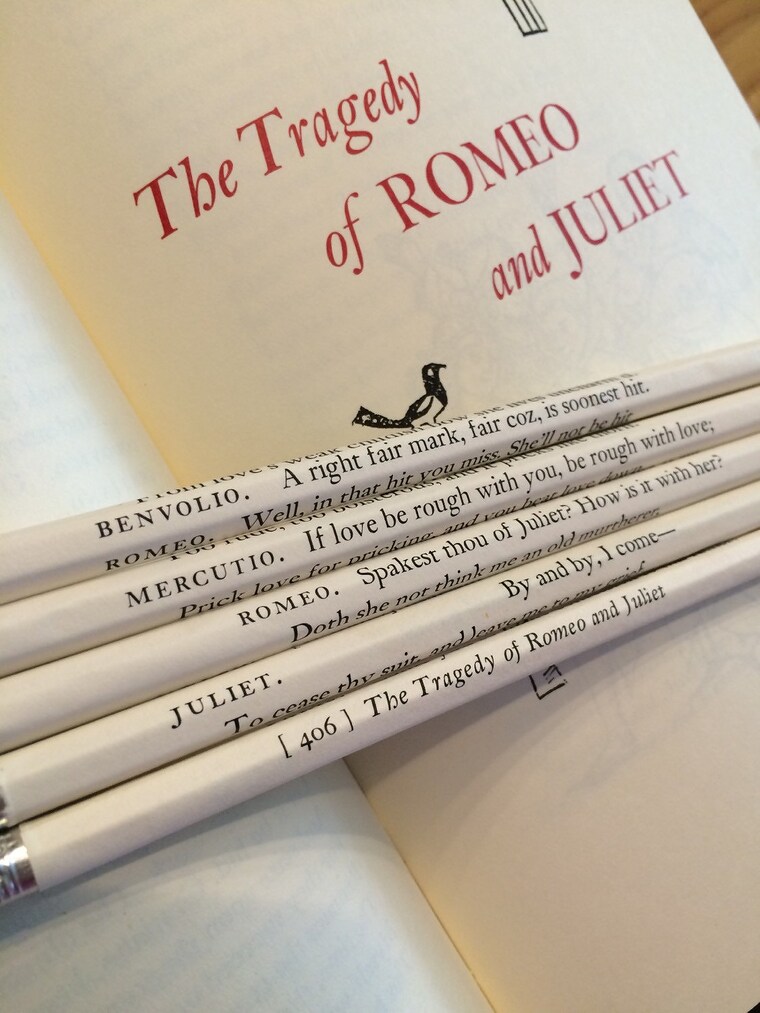 The Tragedy
of ROMEO
and JULIET
From love's weak
BENVOLIO. A right fair mark, fair coz, is soonest hit.
ROMEO. Well, in that hit you miss. She'll not be hit
MERCUTIO. If love be rough with you, be rough with love;
Prick love for pricking, and you beat love down.
ROMEO. Spakest thou of Juliet? How is it with her?
Doth she not think me an old murtherer,
By and by, I come—
JULIET.
To cease thy suit, and leave me to my grief.
[ 406 ] The Tragedy of Romeo and Juliet